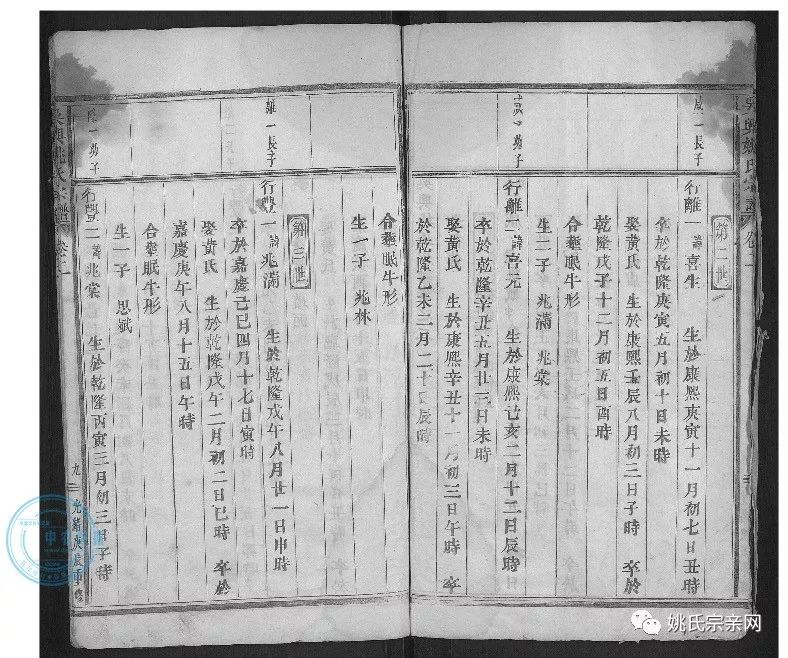 吳興姚氏宗譜 卷二
第二世
咸一長子
行離一 諱喜生 生於康熙庚寅十一月初七日丑時
卒於乾隆庚寅五月初十日未時
娶黃氏 生於康熙壬辰八月初三日子時 卒於
乾隆戊子十二月初五日酉時
合葬眠牛形
生二子 兆滿 兆棠
咸一幼子
行離二 諱喜元 生於康熙己亥二月十二日辰時
卒於乾隆辛丑五月廿三日未時
娶黃氏 生於康熙辛丑十一月初三日午時 卒
於乾隆乙未三月二十日辰時
合葬眠牛形
生一子 兆林
第三世
離一長子
行豐一 諱兆滿 生於乾隆戊午八月廿一日申時
卒於嘉慶己巳四月十七日寅時
娶黃氏 生於乾隆戊午二月初二日巳時 卒於
嘉慶庚午八月十五日午時
合葬眠牛形
生一子 思斌
離一幼子
行豐二 諱兆棠 生於乾隆丙寅三月初三日子時
吳興姚氏宗譜 卷二
九
光緒庚辰重修
姚氏宗亲网